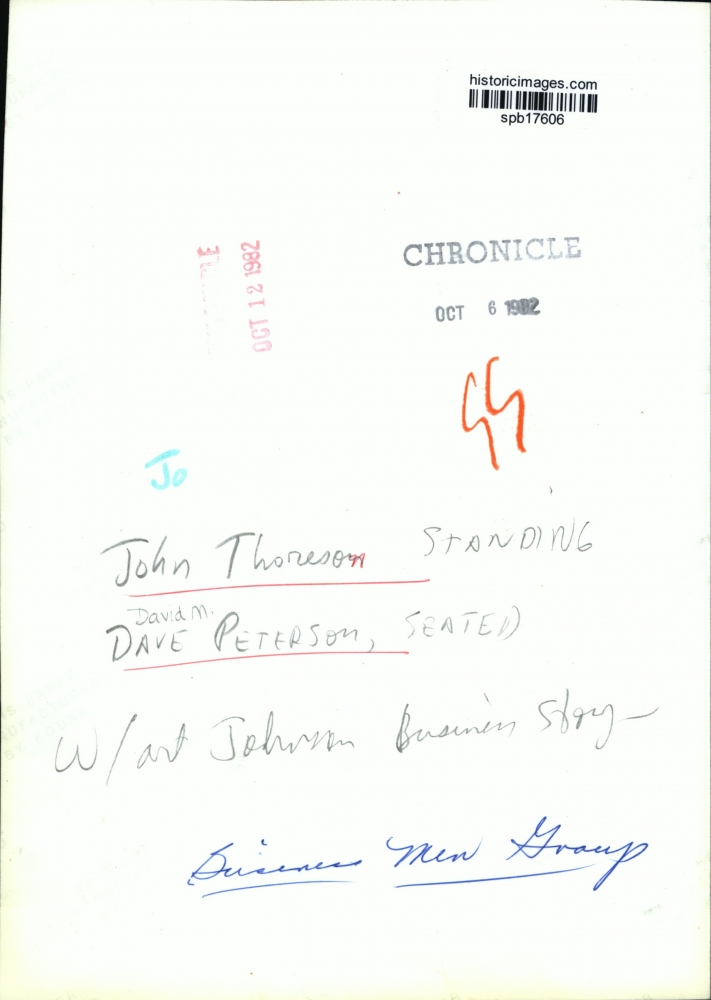 historicimages.com
spb17606
CHRONICLE
OCT 6 1982
OCT 12 1982
Jo
John Thoreson STANDING
David M.
DAVE PETERSON, SEATED
W/art Johnson Business Story
Business Men Group